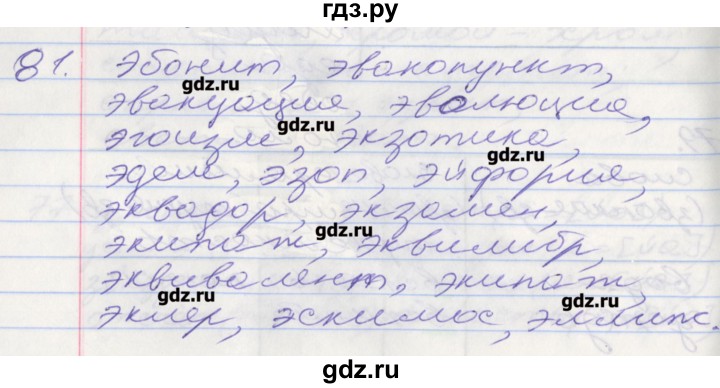 гдз.ру
81. эбонит, эвакопункт,
gdz.ru
эвакуация, эволюция,
gdz.ru
эгоизм, экзотика,
gdz.ru
эдем, эзоп, эйфория,
эквадор, экзамен,
gdz.ru
экипаж, эквилибр,
эквивалент, экипаж,
gdz.ru
gdz.ru
эклер, эскимос, эллипс.
gdz.ru